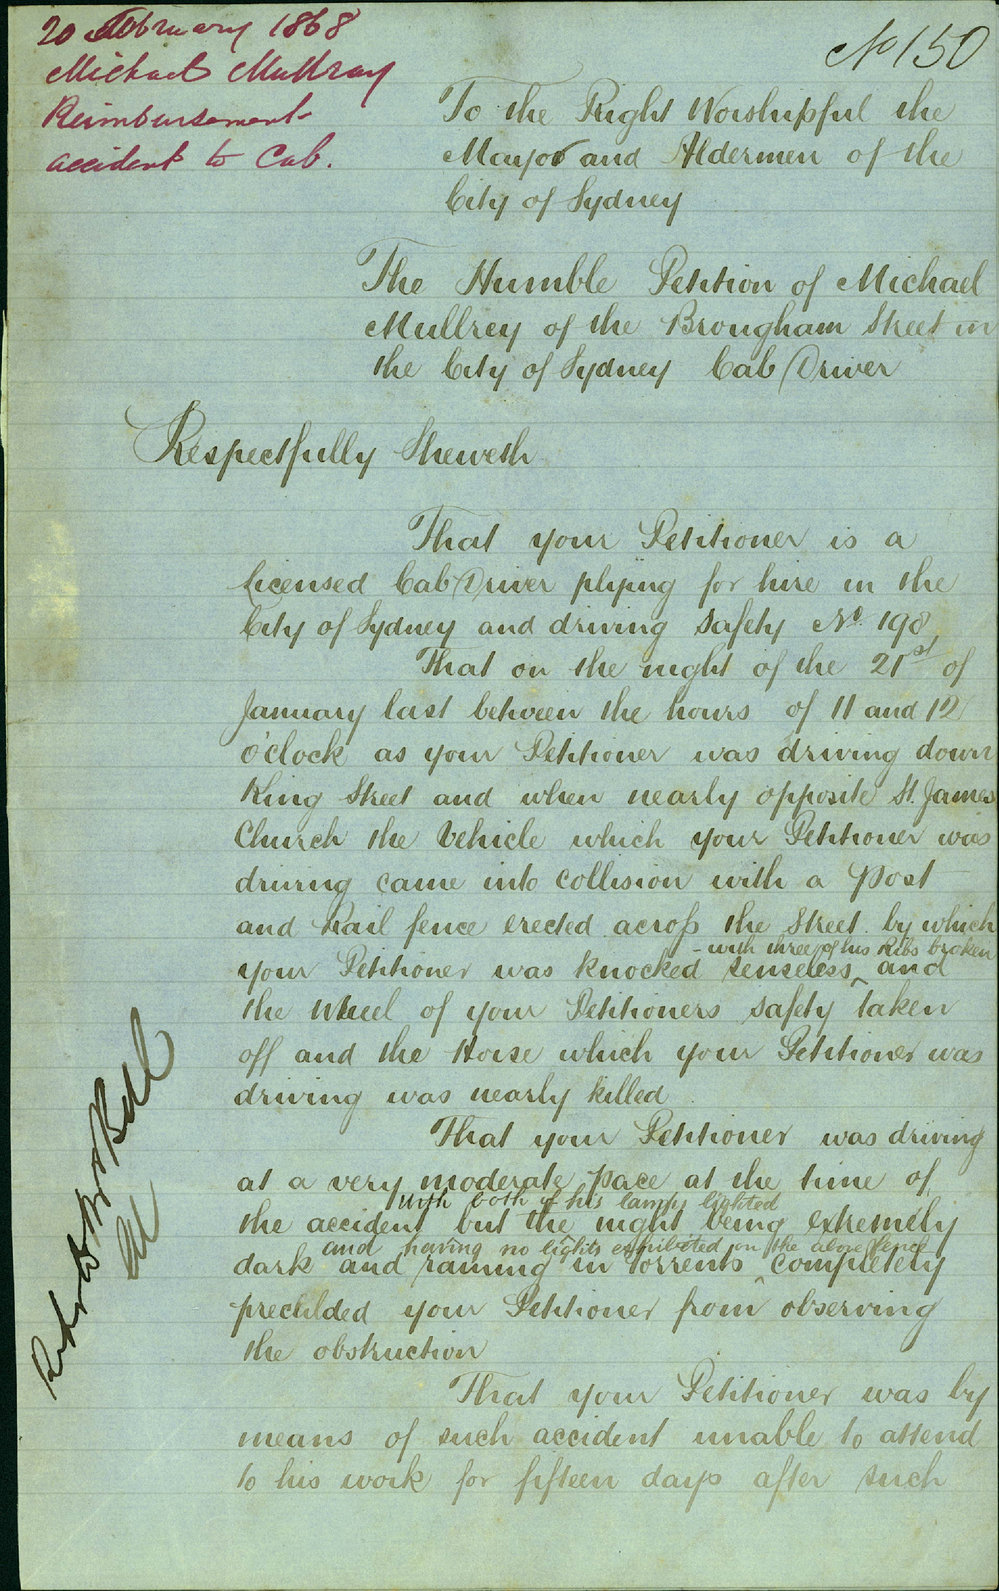 20 February 1868
Michael Mullray
Reimbursement
accident to Cab.
No 150
To the Right Worshipful the
Mayor and Aldermen of the
City of Sydney
The Humble Petition of Michael
Mullrey of the Brougham Street in
the City of Sydney Cab Driver
Respectfully Sheweth
That your Petitioner is a
licensed Cab Driver plying for hire in the
City of Sydney and driving Safety No. 198
That on the night of the 21st of
January last between the hours of 11 and 12
o'clock as your Petitioner was driving down
King Street and when nearly opposite St. James
Church the Vehicle which your Petitioner was
driving came into collision with a Post
and Rail fence erected across the Street by which
- with three of his Ribs broken
your Petitioner was knocked senseless ‸ and
the Wheel of your Petitioners Safety taken
off and the Horse which your Petitioner was
driving was nearly killed
That your Petitioner was driving
at a very moderate pace at the time of
with both of his lamps lighted
the accident but the night being extremely
and having no lights exhibited on the above fence
dark and raining in torrents ‸ completely
precluded your Petitioner from observing
the obstruction
That your Petitioner was by
means of such accident unable to attend
to his work for fifteen days after such